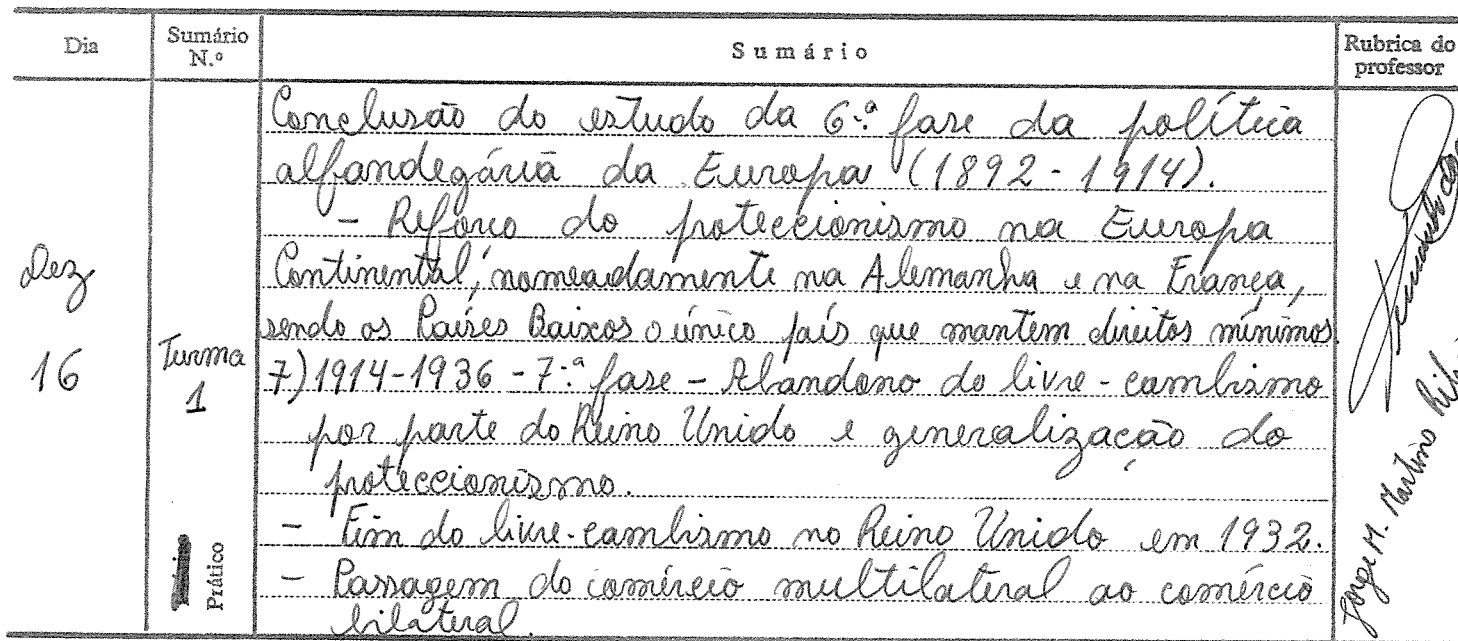 Dia
Sumário N.º
Sumário
Rubrica do professor
Dez
16
Turma
1
Prático
Conclusão do estudo da 6.ª fase da política
alfandegária da Europa (1892-1914).
- Reforço do proteccionismo na Europa
Continental, nomeadamente na Alemanha e na França,
sendo os Países Baixos o único país que mantem direitos mínimos.
7) 1914-1936 - 7.ª fase - Abandono do livre-cambismo
por parte do Reino Unido e generalização do
proteccionismo.
- Fim do livre-cambismo no Reino Unido em 1932.
- Passagem do comércio multilateral ao comércio
bilateral.
Jorge M. Martins